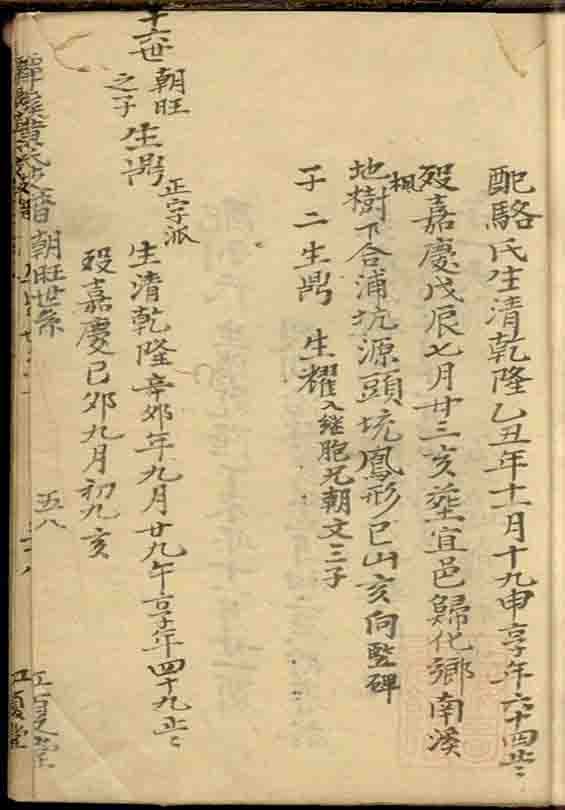 配駱氏生清乾隆乙丑年十一月十九申享年六十四歲
歿嘉慶戊辰七月廿三亥塟宜邑歸化鄉南溪
楓
地樹下合浦坑源頭坑鳳形巳山亥向豎碑
子二生鼎 生耀入継胞兄朝文三子
十六世
朝旺
之子
生鼎
正字派
生清乾隆辛卯年九月廿九午享年四十九歲
歿嘉慶己卯九月初九亥
朝旺世系
五八